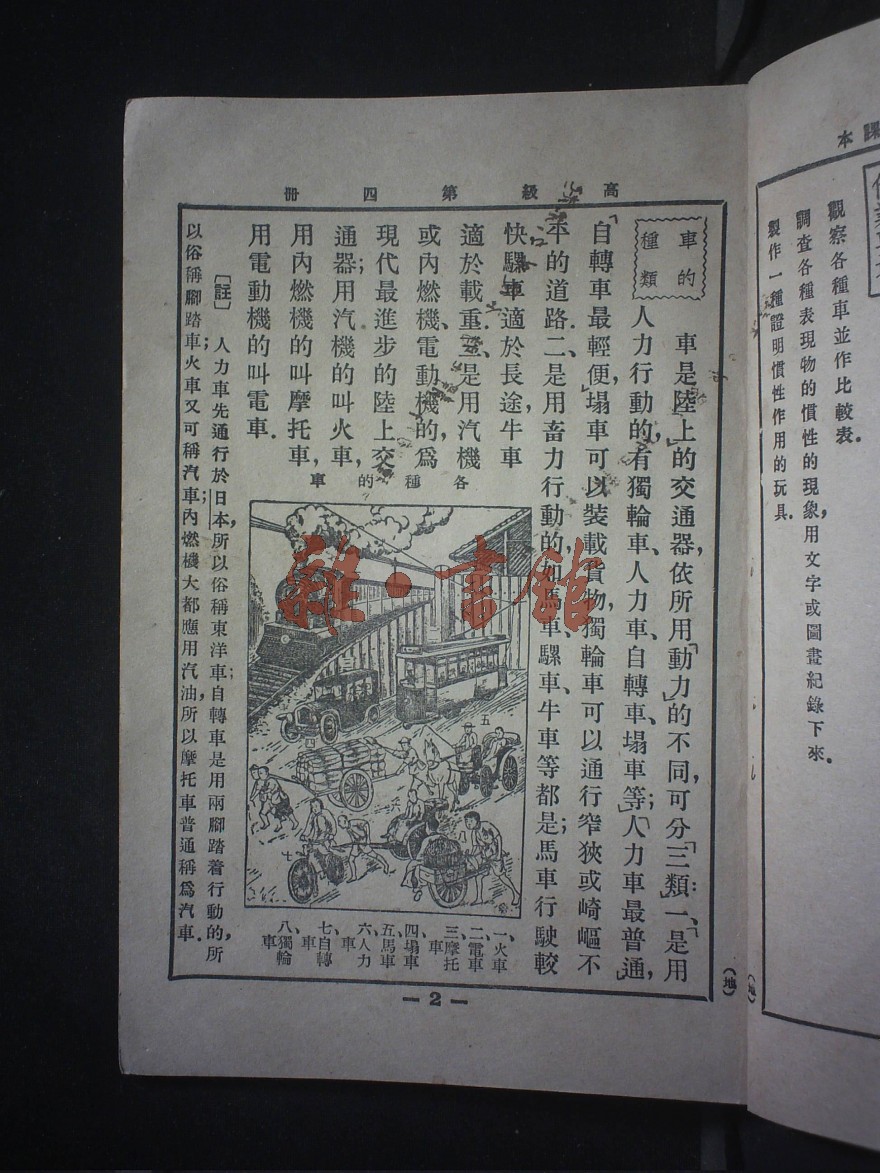 課本
觀察各種車並作比較表.
調查各種表現物的慣性的現象,用文字或圖畫紀錄下來.
製作一種證明慣性作用的玩具.
(地)
高級第四冊
車的
種類
車是陸上的交通器,依所用「動力」的不同,可分「三類」:一、「是用
人力行動的,有獨輪車、人力車、自轉車、塌車等」;「人力車最普通,
「自轉車最輕便,塌車可以裝載貨物,獨輪車可以通行窄狹或崎嶇不
平的道路.二、是用畜力行動的,如馬車、騾車、牛車等都是;馬車行駛較
快,騾車適於長途,牛車
適於載重.三、是用汽機
或內燃機、電動機的,爲
現代最進步的陸上交
通器;用汽機的叫火車,
用內燃機的叫摩托車,
用電動機的叫電車.
各種的車
一、火車
二、電車
三、摩托車
四、塌車
五、馬車
六、人力車
七、自轉車
八、獨輪車
[註] 人力車先通行於日本,所以俗稱東洋車;自轉車是用兩腳踏着行動的,所
以俗稱腳踏車;火車又可稱汽車;內燃機大都應用汽油,所以摩托車普通稱爲汽車.
(地)
—2—
雜·書館